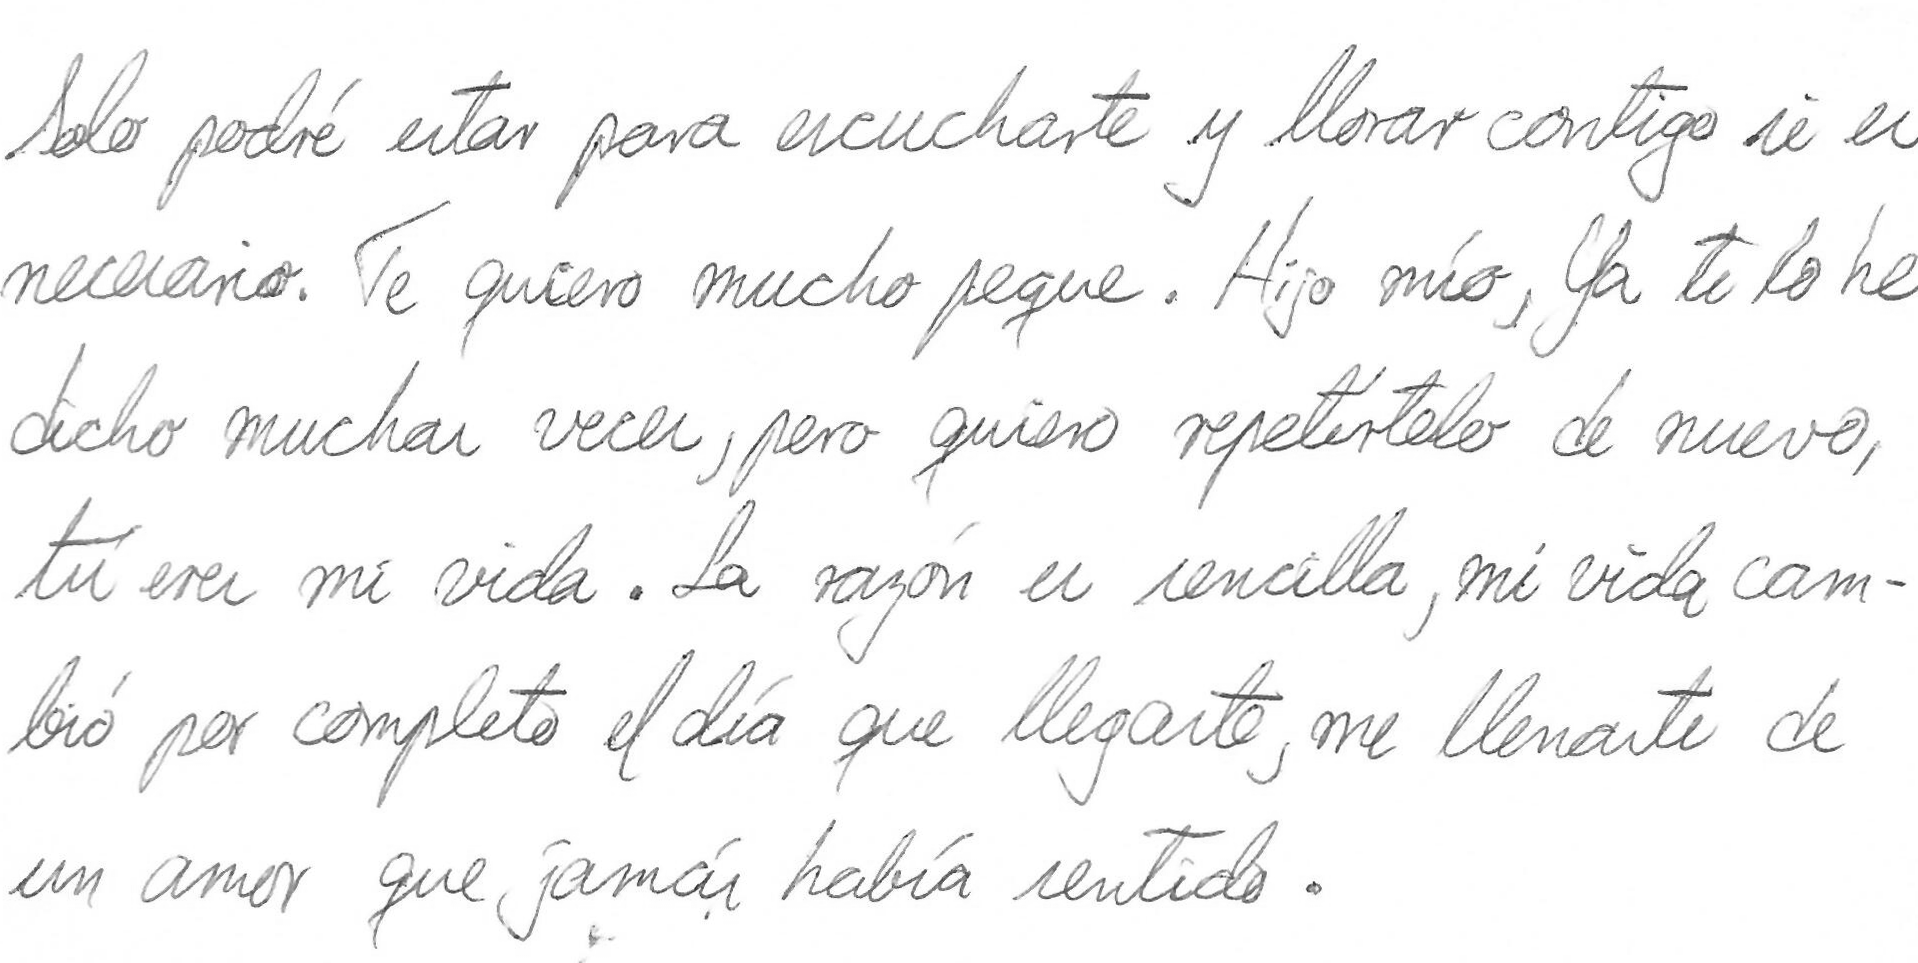 Solo podré estar para escucharte y llorar contigo si es
necesario. Te quiero mucho peque. Hijo mío, Ya te lo he
dicho muchas veces, pero quiero repetírtelo de nuevo,
tú eres mi vida. La razón es sencilla, mi vida cam-
bió por completo el día que llegaste, me llenaste de
un amor que jamás había sentido.